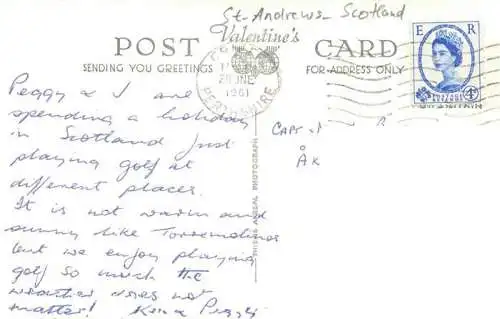 St-Andrews-Scotland
Valentine's
POST CARD
SENDING YOU GREETINGS
FOR ADDRESS ONLY
E R
POSTAGE
REVENUE
4D
JNE
1961
PERTHSHIRE
Peggy & I are
spending a holiday
in Scotland just
playing golf at
different places.
It is not warm and
sunny like Torremolinos
but we enjoy playing
golf so much the
weather does not
matter! Ken & Peggy
THIS IS AN AERIAL PHOTOGRAPH
Capt
ÅK